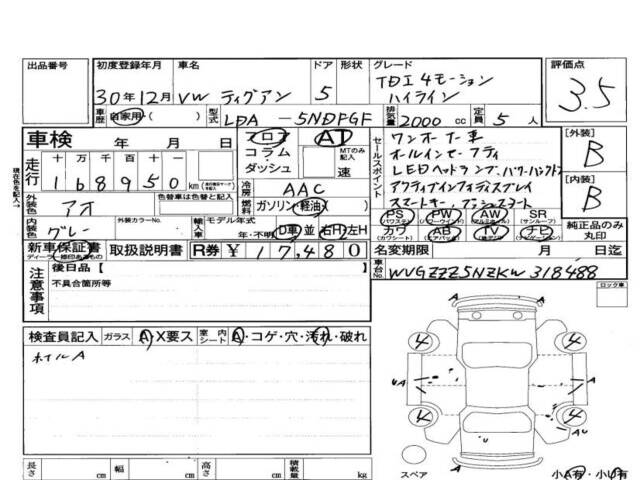 出品番号 初度登録年月 車名 ドア 形状 グレード 評価点
30年12月 VW ティグアン 5 TDI 4モーション ハイライン 3.5
車歴 自家用( ) 型式 LDA - 5NDFGF 排気量 2000cc 定員 5人
車検 年 月 日 フロア AT
コラム・ダッシュ MTのみ記入 速
走行 十 万 千 百 十 一
168950km
セールスポイント
ワンオーナー車
オールインセーフティ
LEDヘッドランプ、パワーバックドア
アクティブインフォディスプレイ
スマートキー、プッシュスタート
[外装] B
[内装] B
外装色 アオ 色替車は色替と記入 冷房 AAC
燃料 ガソリン・軽油
内装色 グレー 外装カラーNo. 輸入車 モデル年式
年・不明 D車・並 右H・左H
PS PW AW SR
カワ AB TV ナビ
純正品のみ丸印
新車保証書 取扱説明書 R券 ¥17,480
名変期限 月 日迄
車台No. WVGZZZ5NZKW318488
注意事項 後日品【 】
不具合箇所等
ロック車
検査員記入 ガラス A・X要ス 室内シート A・コゲ・穴・汚れ・破れ
ホイルA
A
4 4
UA A
4 4
U AU
A
スペア
長さ cm 幅 cm 高さ cm 積載量 kg
小A有・小U有